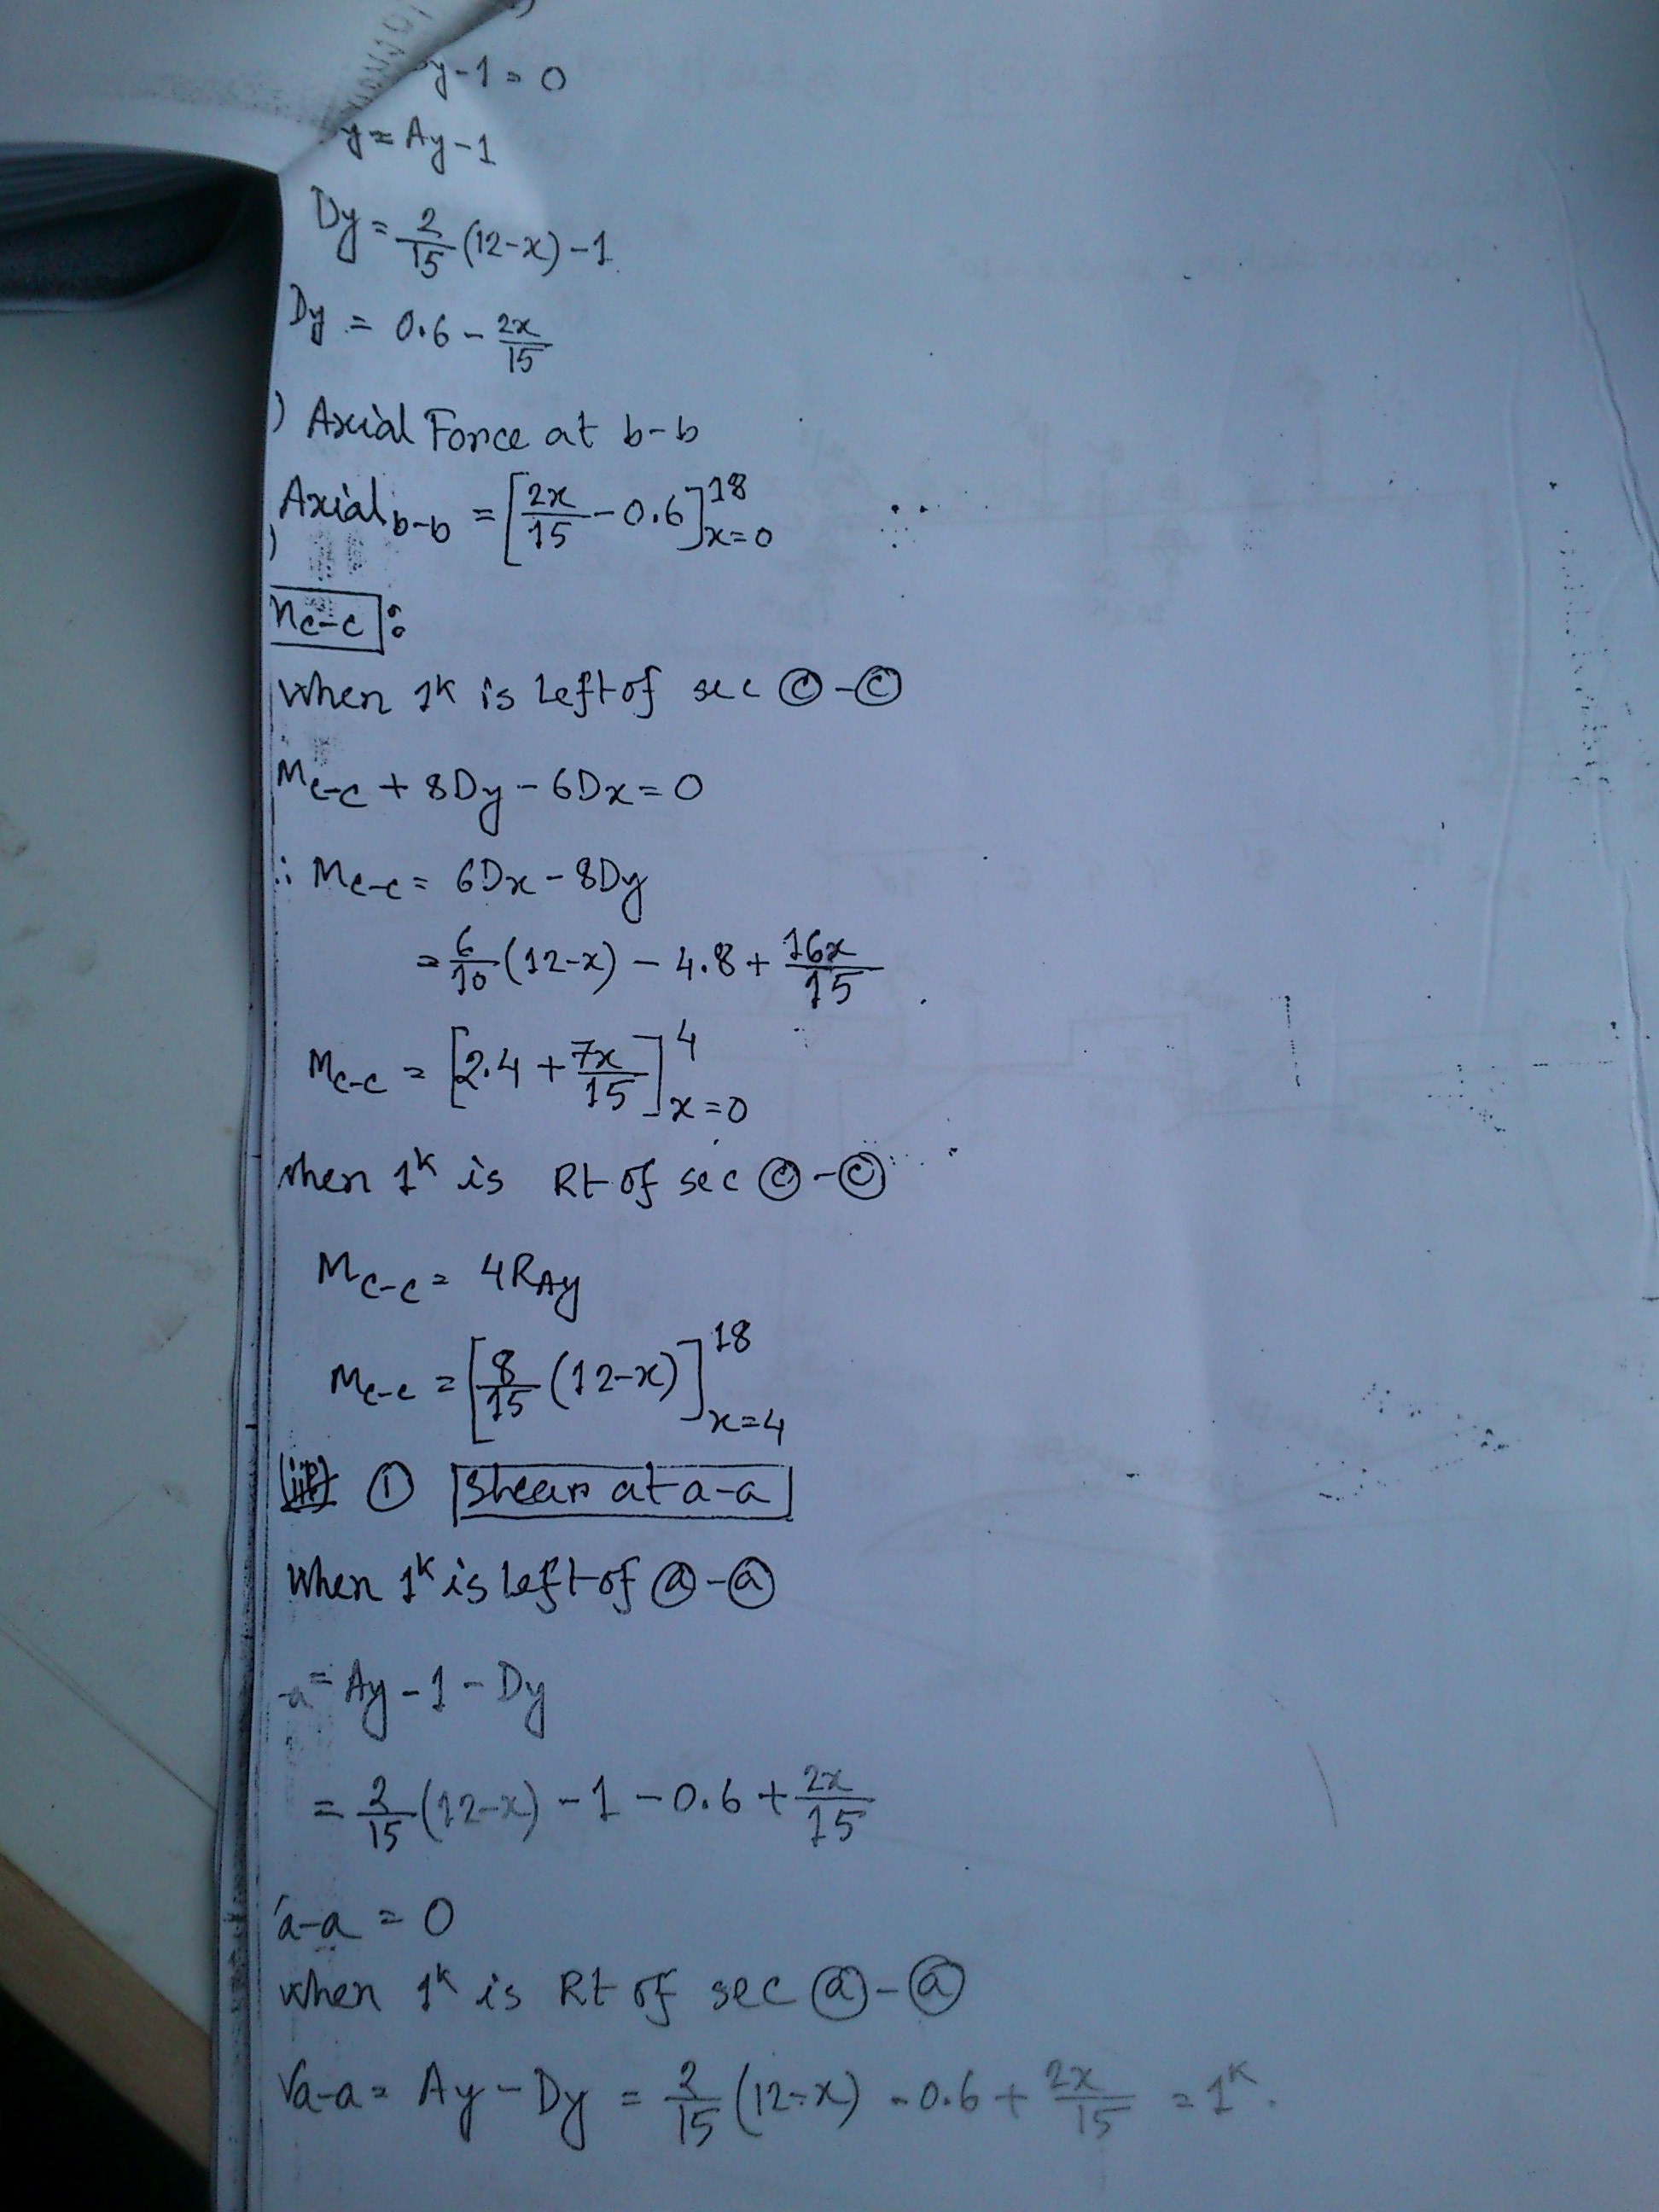 y-1=0
y = Ay-1
Dy = 2/15 (12-x) -1
Dy = 0.6 - 2x/15
) Axial Force at b-b
Axial b-b = [2x/15 - 0.6]^18 x=0
Mc-c :
When 1^K is Left of sec ⓒ-ⓒ
Mc-c + 8Dy - 6Dx = 0
∴ Mc-c = 6Dx - 8Dy
= 6/10 (12-x) - 4.8 + 16x/15
Mc-c = [2.4 + 7x/15]^4 x=0
when 1^K is Rt of sec ⓒ-ⓒ
Mc-c = 4RAy
Mc-c = [8/15 (12-x)]^18 x=4
① Shear at a-a
When 1^K is left of ⓐ-ⓐ
-a = Ay - 1 - Dy
= 2/15 (12-x) - 1 - 0.6 + 2x/15
a-a = 0
when 1^K is Rt of sec ⓐ-ⓐ
Va-a = Ay - Dy = 2/15 (12-x) - 0.6 + 2x/15 = 1^K.